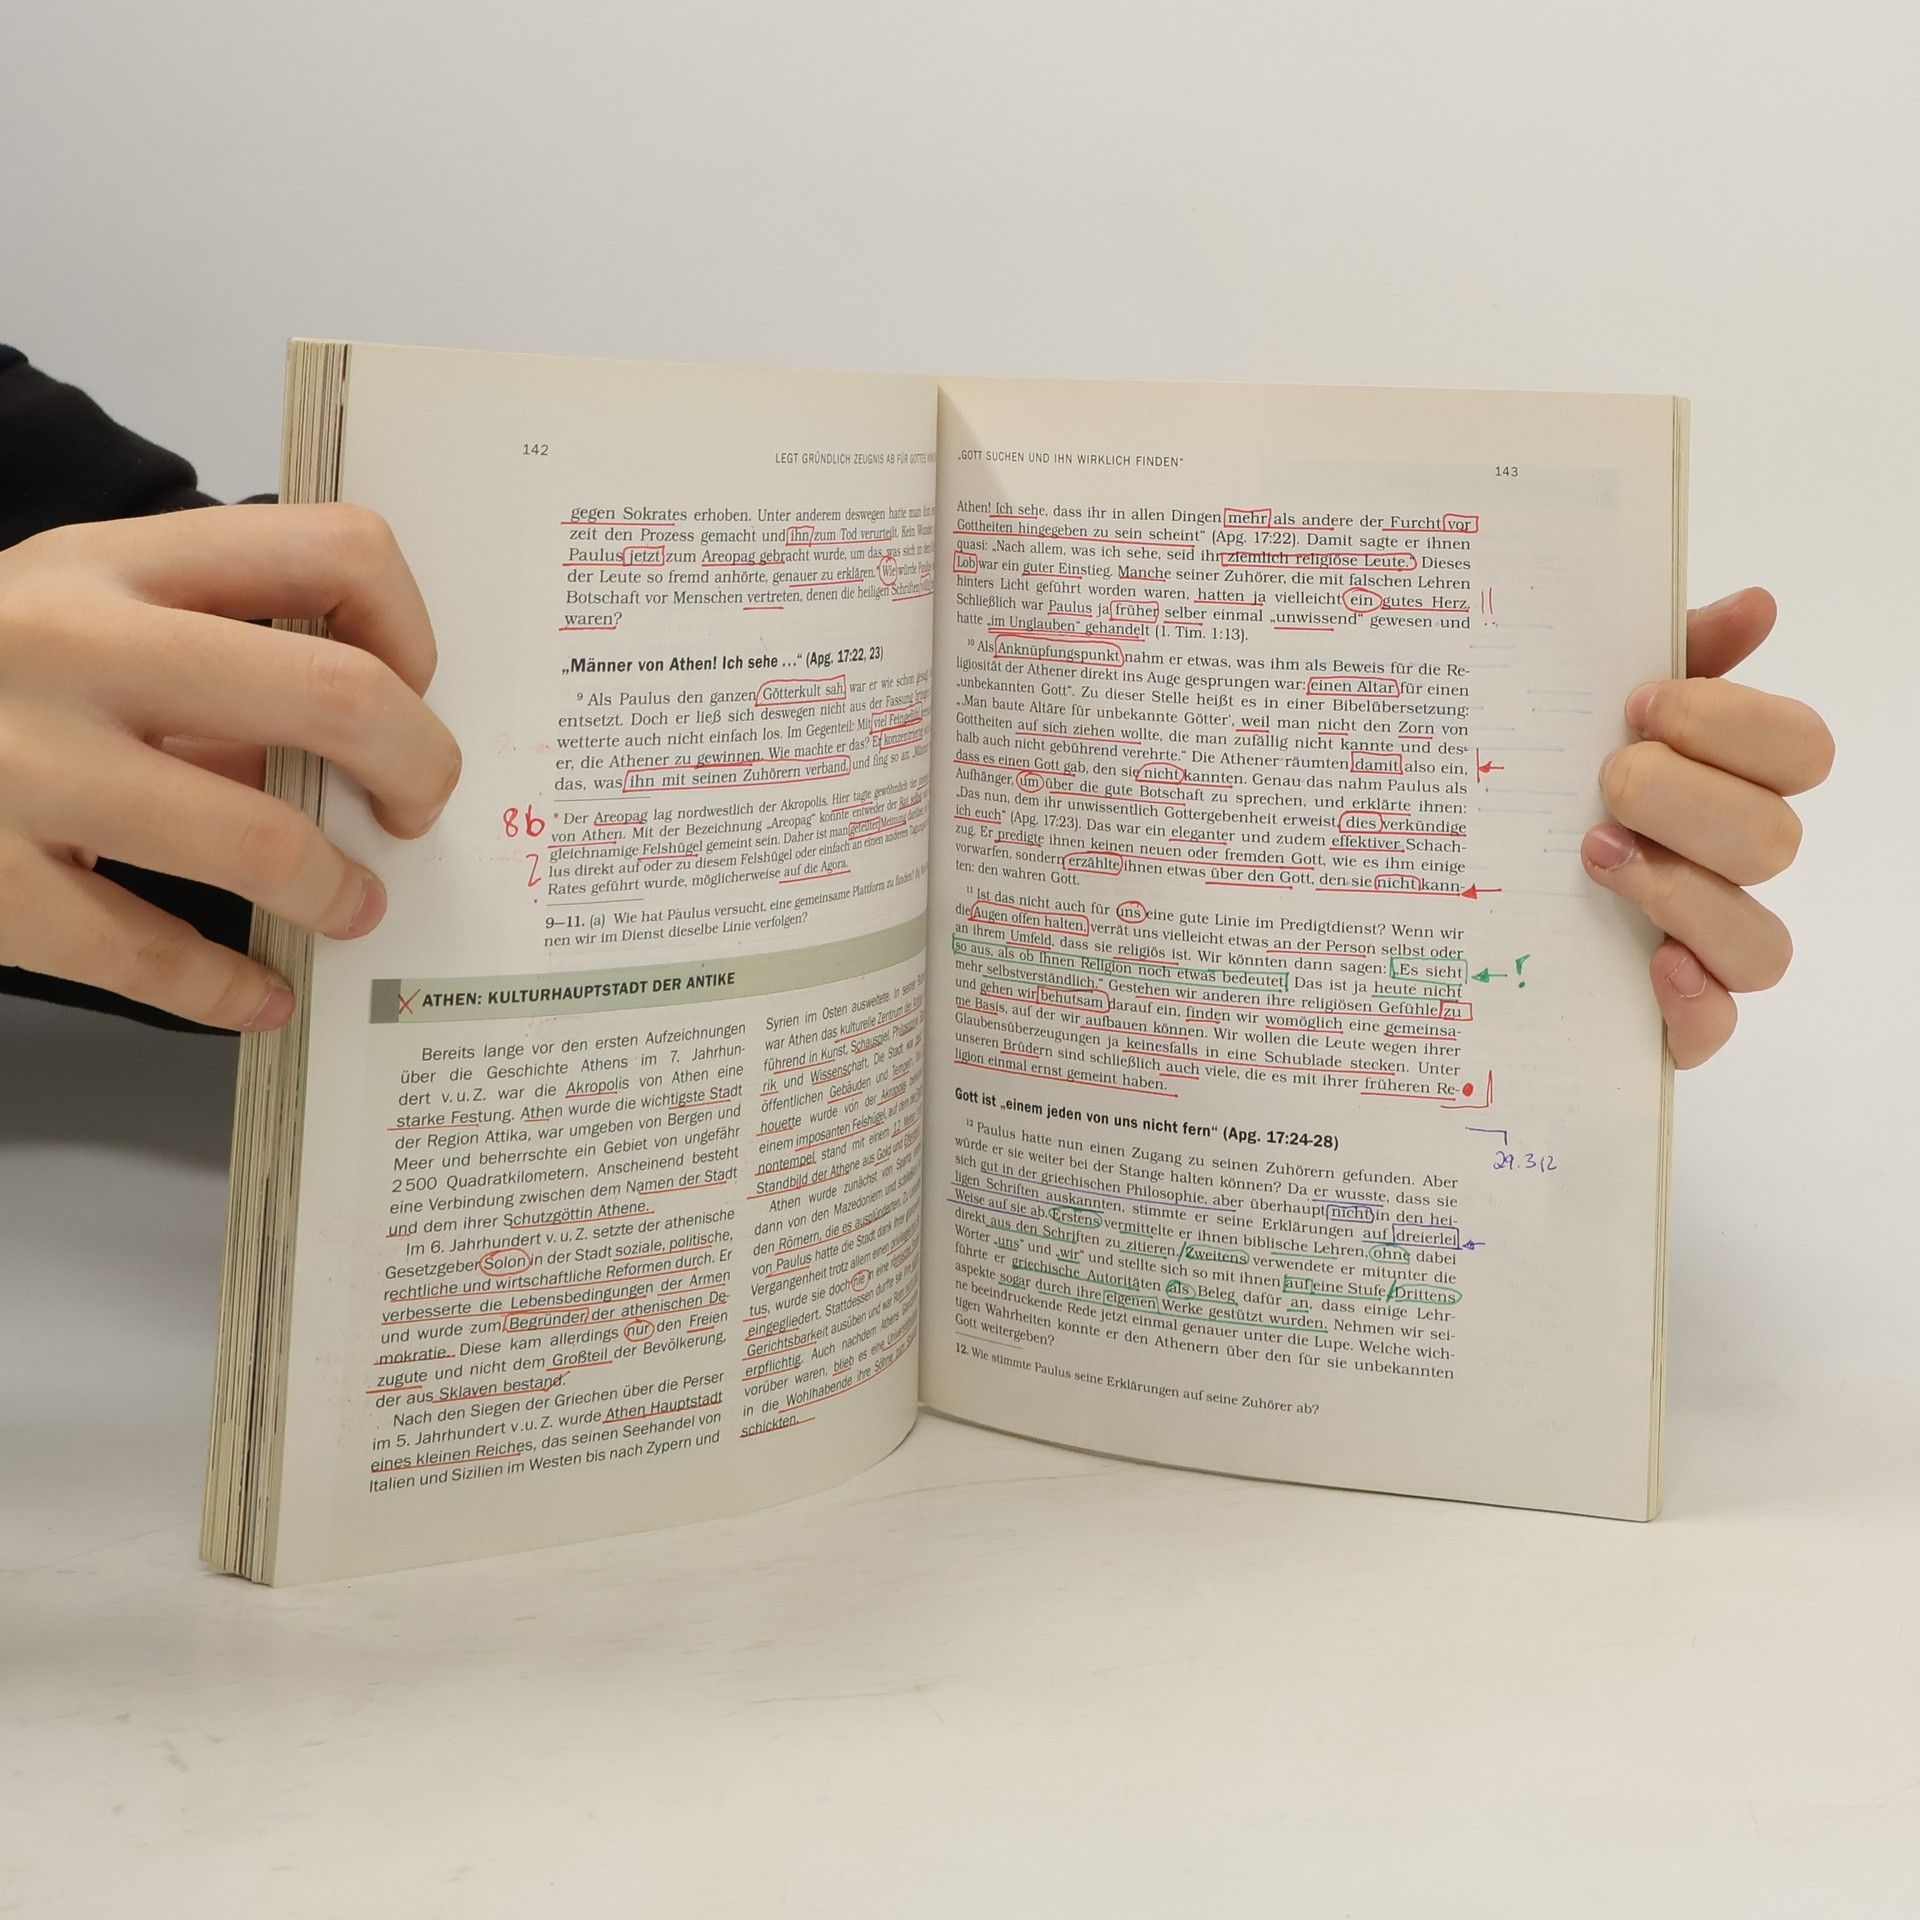 142
LEGT GRÜNDLICH ZEUGNIS AB FÜR GOTTES
gegen Sokrates erhoben. Unter anderem deswegen hatte man
zeit den Prozess gemacht und ihn zum Tod verurteilt. Kein
Paulus jetzt zum Areopag gebracht wurde, um das, was sich in den
der Leute so fremd anhörte, genauer zu erklären.* Wie würde
Botschaft vor Menschen vertreten, denen die heiligen Schriften
waren?
„Männer von Athen! Ich sehe ...“ (Apg. 17:22, 23)
9 Als Paulus den ganzen Götterkult sah, war er wie schon gesagt
entsetzt. Doch er ließ sich deswegen nicht aus der Fassung bringen
wetterte auch nicht einfach los. Im Gegenteil: Mit viel Feingefühl
er, die Athener zu gewinnen. Wie machte er das? Er konzentrierte
das, was ihn mit seinen Zuhörern verband, und fing so an: „Männer
8b
* Der Areopag lag nordwestlich der Akropolis. Hier tagte gewöhnlich der
von Athen. Mit der Bezeichnung „Areopag“ konnte entweder der Rat selbst
gleichnamige Felshügel gemeint sein. Daher ist man geteilter Meinung darüber,
lus direkt auf oder zu diesem Felshügel oder einfach an einen anderen Tagungsort
Rates geführt wurde, möglicherweise auf die Agora.
9–11. (a) Wie hat Paulus versucht, eine gemeinsame Plattform zu finden?
nen wir im Dienst dieselbe Linie verfolgen?
ATHEN: KULTURHAUPTSTADT DER ANTIKE
Bereits lange vor den ersten Aufzeichnungen
über die Geschichte Athens im 7. Jahrhun-
dert v. u. Z. war die Akropolis von Athen eine
starke Festung. Athen wurde die wichtigste Stadt
der Region Attika, war umgeben von Bergen und
Meer und beherrschte ein Gebiet von ungefähr
2 500 Quadratkilometern. Anscheinend besteht
eine Verbindung zwischen dem Namen der Stadt
und dem ihrer Schutzgöttin Athene.
Im 6. Jahrhundert v. u. Z. setzte der athenische
Gesetzgeber Solon in der Stadt soziale, politische,
rechtliche und wirtschaftliche Reformen durch. Er
verbesserte die Lebensbedingungen der Armen
und wurde zum Begründer der athenischen De-
mokratie. Diese kam allerdings nur den Freien
zugute und nicht dem Großteil der Bevölkerung,
der aus Sklaven bestand.
Nach den Siegen der Griechen über die Perser
im 5. Jahrhundert v. u. Z. wurde Athen Hauptstadt
eines kleinen Reiches, das seinen Seehandel von
Italien und Sizilien im Westen bis nach Zypern und
Syrien im Osten ausweitete. In seiner
war Athen das kulturelle Zentrum der
führend in Kunst, Schauspiel,
rik und Wissenschaft. Die Stadt war
öffentlichen Gebäuden und Tempeln.
houette wurde von der Akropolis
einem imposanten Felshügel, auf dem der
nontempel stand mit einem 12 Meter
Standbild der Athene aus Gold und
Athen wurde zunächst von Sparta
dann von den Mazedoniern und
den Römern, die es ausplünderten. Zu
von Paulus hatte die Stadt dank ihrer
Vergangenheit trotz allem einen
tus, wurde sie doch nie in eine römische
eingegliedert. Stattdessen durfte sie ihre
Gerichtsbarkeit ausüben und war Rom
erpflichtig. Auch nachdem Athens
vorüber waren, blieb es eine
in die Wohlhabende ihre Söhne zum
schickten.
„GOTT SUCHEN UND IHN WIRKLICH FINDEN“
143
Athen! Ich sehe, dass ihr in allen Dingen mehr als andere der Furcht vor
Gottheiten hingegeben zu sein scheint“ (Apg. 17:22). Damit sagte er ihnen
quasi: „Nach allem, was ich sehe, seid ihr ziemlich religiöse Leute.“ Dieses
Lob war ein guter Einstieg. Manche seiner Zuhörer, die mit falschen Lehren
hinters Licht geführt worden waren, hatten ja vielleicht ein gutes Herz. !!
Schließlich war Paulus ja früher selber einmal „unwissend“ gewesen und
hatte „im Unglauben“ gehandelt (1. Tim. 1:13).
10 Als Anknüpfungspunkt nahm er etwas, was ihm als Beweis für die Re-
ligiosität der Athener direkt ins Auge gesprungen war: einen Altar für einen
„unbekannten Gott“. Zu dieser Stelle heißt es in einer Bibelübersetzung:
„‚Man baute Altäre für unbekannte Götter‘, weil man nicht den Zorn von
Gottheiten auf sich ziehen wollte, die man zufällig nicht kannte und des-
halb auch nicht gebührend verehrte.“ Die Athener räumten damit also ein,
dass es einen Gott gab, den sie nicht kannten. Genau das nahm Paulus als
Aufhänger, um über die gute Botschaft zu sprechen, und erklärte ihnen:
„Das nun, dem ihr unwissentlich Gottergebenheit erweist, dies verkündige
ich euch“ (Apg. 17:23). Das war ein eleganter und zudem effektiver Schach-
zug. Er predigte ihnen keinen neuen oder fremden Gott, wie es ihm einige
vorwarfen, sondern erzählte ihnen etwas über den Gott, den sie nicht kann-
ten: den wahren Gott.
11 Ist das nicht auch für uns eine gute Linie im Predigtdienst? Wenn wir
die Augen offen halten, verrät uns vielleicht etwas an der Person selbst oder
an ihrem Umfeld, dass sie religiös ist. Wir könnten dann sagen: „Es sieht !
so aus, als ob Ihnen Religion noch etwas bedeutet. Das ist ja heute nicht
mehr selbstverständlich.“ Gestehen wir anderen ihre religiösen Gefühle zu
und gehen wir behutsam darauf ein, finden wir womöglich eine gemeinsa-
me Basis, auf der wir aufbauen können. Wir wollen die Leute wegen ihrer
Glaubensüberzeugungen ja keinesfalls in eine Schublade stecken. Unter
unseren Brüdern sind schließlich auch viele, die es mit ihrer früheren Re-
ligion einmal ernst gemeint haben.
Gott ist „einem jeden von uns nicht fern“ (Apg. 17:24-28)
29.3.12
12 Paulus hatte nun einen Zugang zu seinen Zuhörern gefunden. Aber
würde er sie weiter bei der Stange halten können? Da er wusste, dass sie
sich gut in der griechischen Philosophie, aber überhaupt nicht in den hei-
ligen Schriften auskannten, stimmte er seine Erklärungen auf dreierlei
Weise auf sie ab. Erstens vermittelte er ihnen biblische Lehren, ohne dabei
direkt aus den Schriften zu zitieren. Zweitens verwendete er mitunter die
Wörter „uns“ und „wir“ und stellte sich so mit ihnen auf eine Stufe. Drittens
führte er griechische Autoritäten als Beleg dafür an, dass einige Lehr-
aspekte sogar durch ihre eigenen Werke gestützt wurden. Nehmen wir sei-
ne beeindruckende Rede jetzt einmal genauer unter die Lupe. Welche wich-
tigen Wahrheiten konnte er den Athenern über den für sie unbekannten
Gott weitergeben?
12. Wie stimmte Paulus seine Erklärungen auf seine Zuhörer ab?